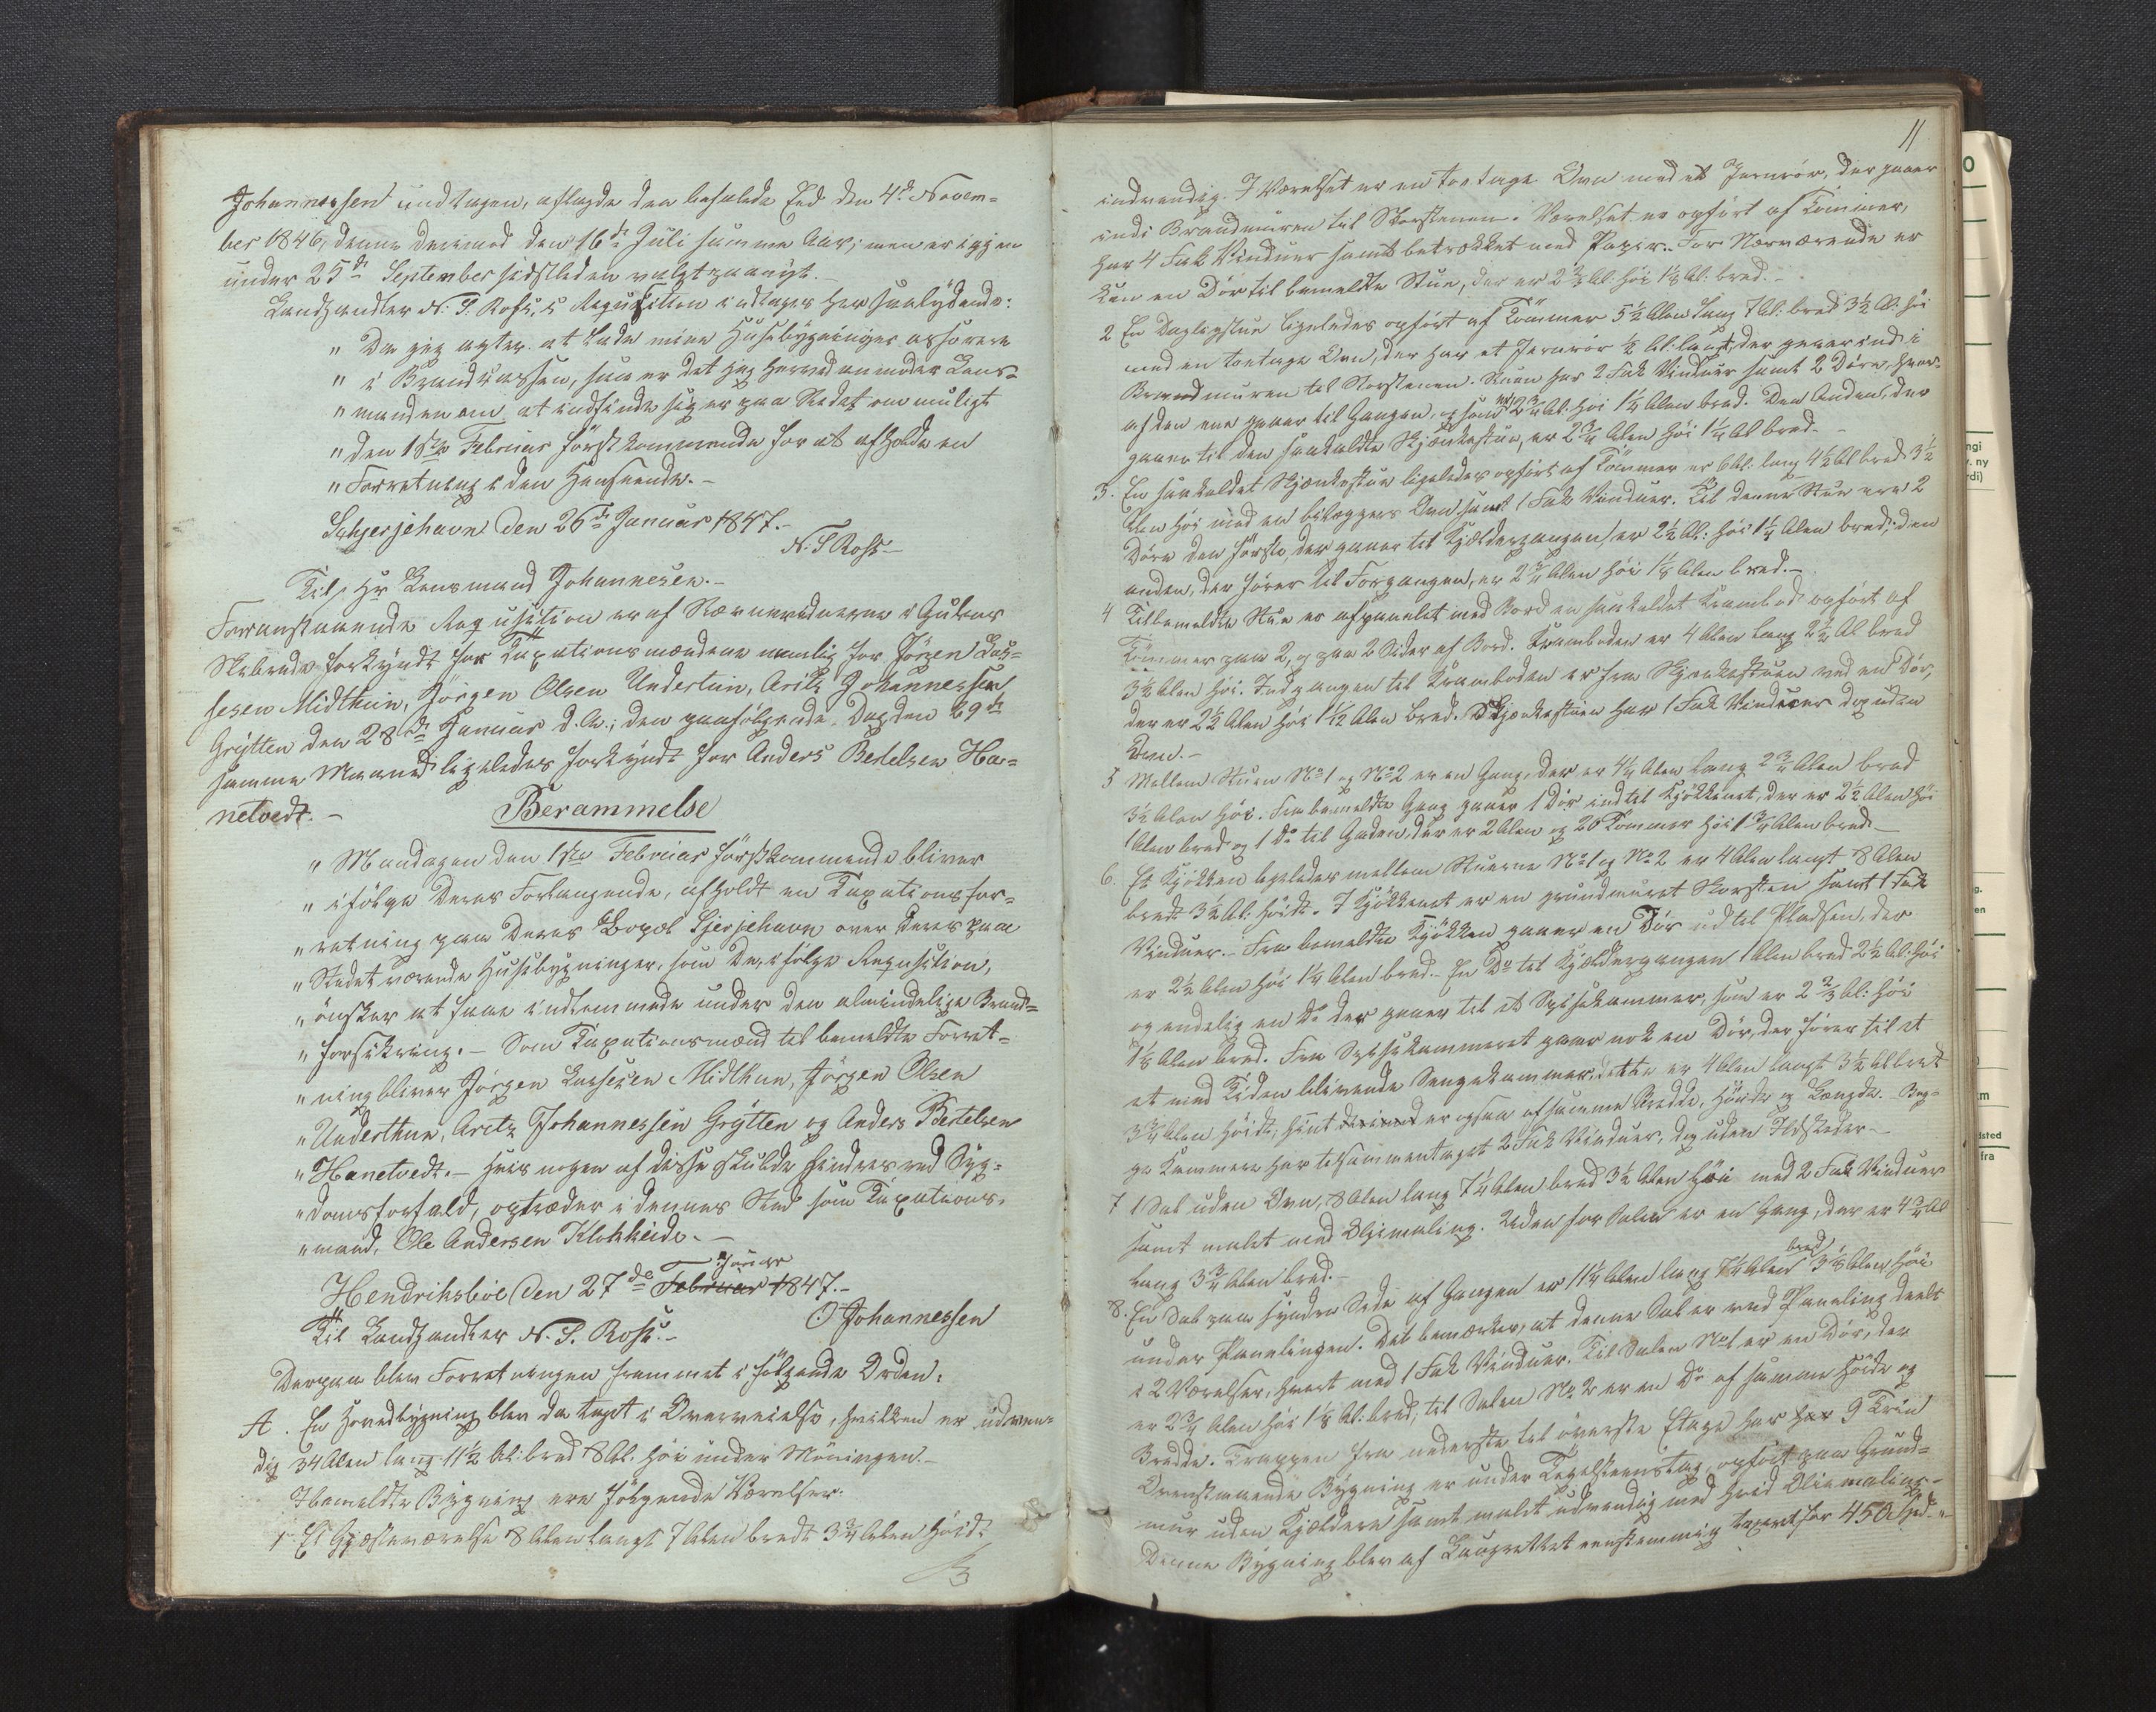 Johannessen undtagen, aflagde den befalede Eed den 4de Novem=
ber 1846, denne derimod den 16de Juli samme Aar; men er igjen
under 25de September sidstleden valgt paanyt.
Landhandler N. S. Ross's Requisition indtages her saalydende:
" Da jeg agter at lade mine Huusbygninger assurere
" i Brandkassen, saa er det jeg herved anmoder Lens=
" manden om at indfinde sig her paa Stedet om muligt
" den 1ste Februar förstkommende for at afholde en
" Forretning i den Henseende.-
Schjerjehavn den 26de Januar 1847.-
N. S Ross-
Til Hr Lensmand Johannesen.-
Forranstaaende Requisition er af Stævnevidnerne i Gulens
Skibrede forkyndt for Taxationsmændene nemlig for Jörgen Las=
sesen Midthun, Jörgen Olsen Undertun, Aritz Johannessen
Grytten den 28de Januar d. A.; den paafölgende Dag den 29de
samme Maaned ligeledes forkyndt for Anders Bertelsen Ha=
netvedt.-
Berammelse
" Mandagen den 1ste Februar förstkommende bliver
" ifölge Deres Forlangende, afholdt en Taxationsfor=
" retning paa Deres Bopel Sjerjehavn over Deres paa
" Stedet værende Huusbygninger, som De, ifölge Requisition,
" önsker at faae indlemmede under den almindelige Brand=
" forsikring.- Som Taxationsmænd til bemeldte Forret=
" ning bliver Jörgen Lassesen Midthun, Jörgen Olsen
" Underthun, Aritz Johannessen Grytten og Anders Bertelsen
" Hanetvedt.- Hvis nogen af disse skulde hindres ved Syg=
" domsforfald, optræder i dennes Sted som Taxations=
" mand, Ole Andersen Klokkeide.-
Januar
Hendriksböe den 27de Februar 1847.-
O Johannessen
Til Landhandler N. S. Ross.-
Derpaa blev Forretningen fremmet i fölgende Orden:
A. En Hovedbygning blev da taget i Overveielse, hvilken er udven=
dig 34 Alen lang 11½ Al: bred 8 Al. höi under Möningen.-
I bemeldte Bygning ere fölgende Værelser:
1 Et Gjæsteværelse 8 Alen langt 7 Alen bredt 3¾ Alen höidt
11
indvendig. I Værelset er en toetages Ovn med et Jernrör, der gaaer
ind i Brandmuren til Skorstenen. Værelset er opfört af Tömmer,
har 4 Fak Vinduer samt betrækket med Papir. For Nærværende er
kun en Dör til bemeldte Stue, der er 2¾ Al: höi 1⅛ Al: bred.-
2 En Dagligstue ligeledes opfört af Tömmer 5½ Alen lang 7 Al: bred 3½ Al: höi
med en toetages Ovn, der har et Jernrör ½ Al: langt, der gaaer ind i
Brandmuren til Skorstenen. Stuen har 2 Fak Vinduer samt 2 Döre, hvor=
af den ene gaaer til Gangen, og som er 2¾ Al: höi 1¼ Alen bred. Den Anden, der
gaaer til den saakaldte Skjænkestue, er 2¾ Alen höi 1¼ Al bred.-
3. En saakaldet Skjænkestue ligeledes opfört af Tömmer er 6 Al: lang 4½ Al bred 3½
Alen höi med en bilæggers Ovn samt 1 Fak Vinduer. Til denne Stue ere 2
Döre den förste, der gaaer til Kjeldergangen, er 2½ Al: höi 1¼ Alen bred; den
anden, der förer til Forgangen, er 2¾ Alen höi 1⅛ Alen bred.-
4 Til bemeldte Stue er afpanelet med Bord en saakaldet Krambod opfört af
Tömmer paa 2, og paa 2 Sider af Bord. Kramboden er 4 Alen lang 2½ Al bred
3½ Alen höi. Indgangen til Kramboden er fra Skjenkestuen ved en Dör,
der er 2½ Alen höi 1 1/12 Alen bred. Skjænkestuen har 1 Fak Vinduer dog uden
Ovn.-
5 Mellem Stuen No 1 og No 2 er en Gang, der er 4¼ Alen lang 2¾ Alen bred
3½ Alen höi. Fra bemeldte Gang gaaer 1 Dör ind til Kjökkenet, der er 2½ Alen höi
1 Alen bred og 1 Do til Gaden, der er 2 Alen og 20 Tommer höi 1¾ Alen bred.-
6. Et Kjökken ligeledes mellem Stuerne No 1 og No 2 er 4 Alen langt 8 Alen
bredt 3½ Al: höidt. I Kjökkenet er en grundmuret Skorsten samt 1 Fak
Vinduer.- Fra bemeldte Kjökken gaaer en Dör ud til Pladsen, der
er 2½ Alen höi 1¼ Alen bred.- En Do til Kjeldergangen 1 Alen bred 2½ Al: höi
og endelig en Do der gaaer til et Spisekammer, som er 2⅔ Al: höi
1⅛ Alen bred. Fra Spisekammeret gaaer nok en Dör, der förer til et
et med Tiden blivende Sengekammer; dette er 4 Alen langt 3½ Al bredt
3¾ Alen höidt; hint derimod er ogsaa af samme Bredde, Höide og Længde. Beg=
ge Kammere har tilsammentaget 2 Fak Vinduer, dog uden Ildsteder.-
7 1 Sal uden Ovn, 8 Alen lang 7¼ Alen bred 3½ Alen höi med 2 Fak Vinduer
samt malet med Oljemaling. Uden for Salen er en Gang, der er 4¾ Al
lang 3¾ Alen bred.-
8. En Sal paa syndre Side af Gangen er 11¼ Alen lang 7¼ Alen bred 3⅛ Alen höi
under Panelingen. Det bemærkes, at denne Sal er ved Paneling deelt
i 2 Værelser, hvert med 1 Fak Vinduer. Til Salen No 1 er en Dör, der
er 2¾ Alen höi 1⅛ Al: bred; til Salen No 2 er en Do af samme Höide og
Bredde. Trappen fra nederste til överste Etage har har 9 Trin
Ovenstaaende Bygning er under Tegelsteenstag, opfört paa Grund=
mur uden Kjeldere samt malet udvendig med hvid Oliemaling.-
Denne Bygning blev af Laugrettet eenstemmig taxeret for 450 Spd.-